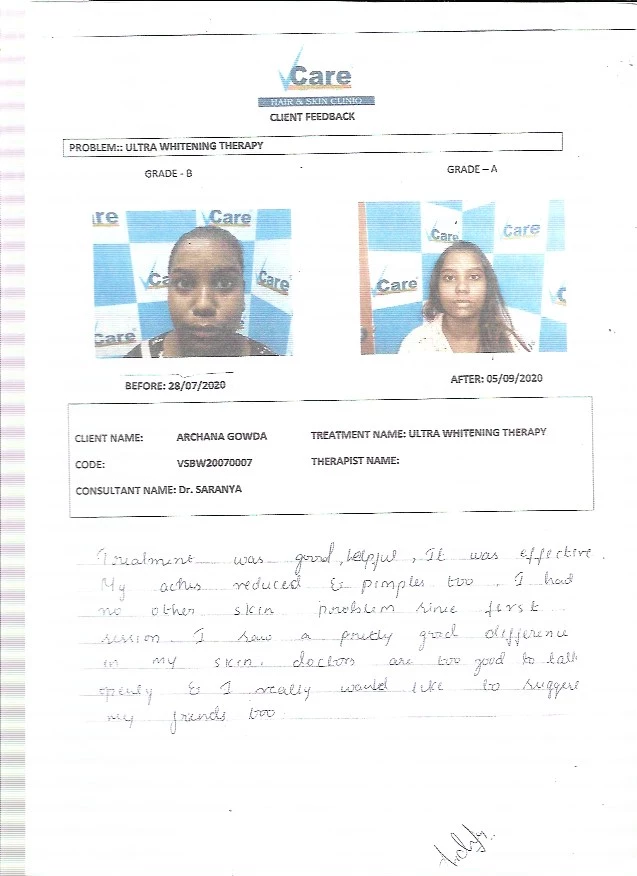 VCare
HAIR & SKIN CLINIC
CLIENT FEEDBACK
PROBLEM:: ULTRA WHITENING THERAPY
GRADE - B
GRADE – A
re
Care
Care
Care
Care
Care
Care
Care
BEFORE: 28/07/2020
AFTER: 05/09/2020
CLIENT NAME: ARCHANA GOWDA TREATMENT NAME: ULTRA WHITENING THERAPY
CODE: VSBW20070007 THERAPIST NAME:
CONSULTANT NAME: Dr. SARANYA
Treatment was good, helpful, It was effective.
My aches reduced & pimples too. I had
no other skin problem since first
session. I saw a pretty good difference
in my skin. doctors are too good to talk
openly & I really would like to suggest
my friends too